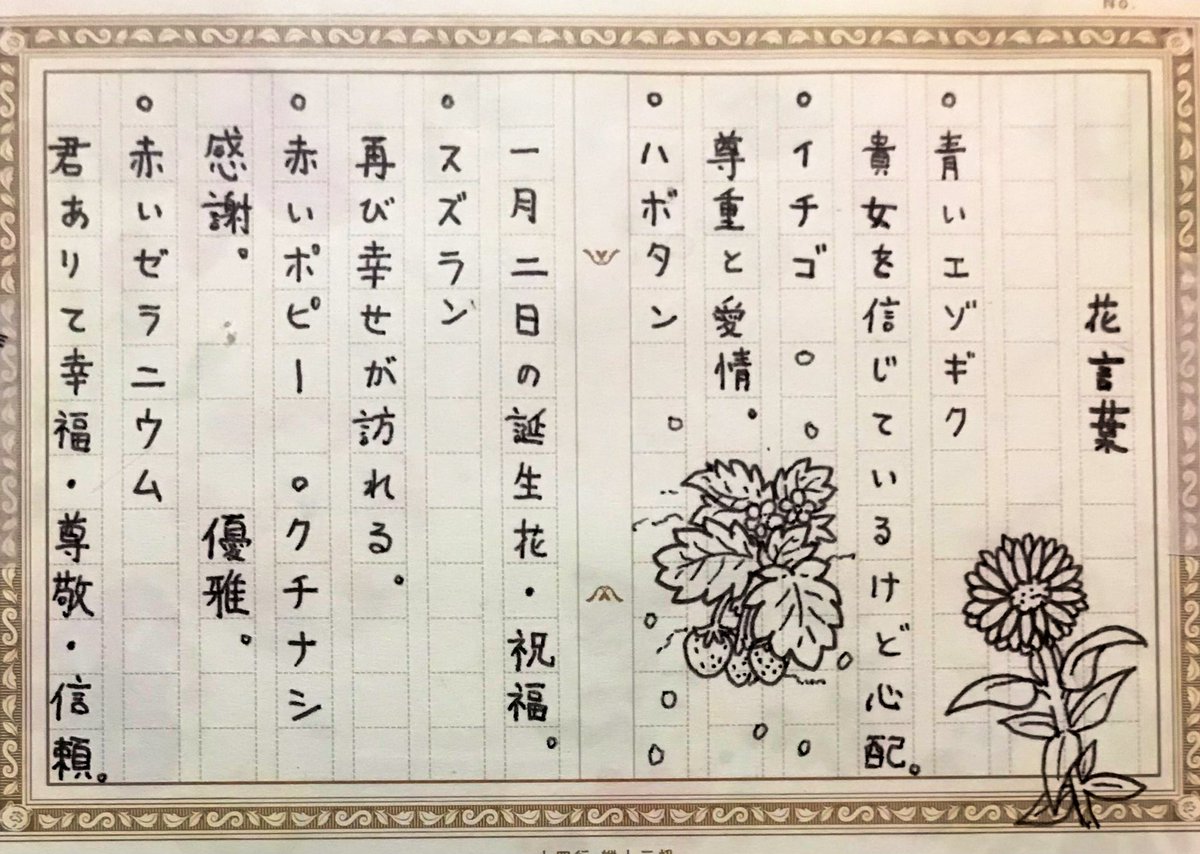 花言葉
○青いエゾギク
貴女を信じているけど心配。
○イチゴ
尊重と愛情。
○ハボタン
一月二日の誕生花・祝福。
○スズラン
再び幸せが訪れる。
○赤いポピー ○クチナシ
感謝。 優雅。
○赤いゼラニウム
君ありて幸福・尊敬・信頼。
No.